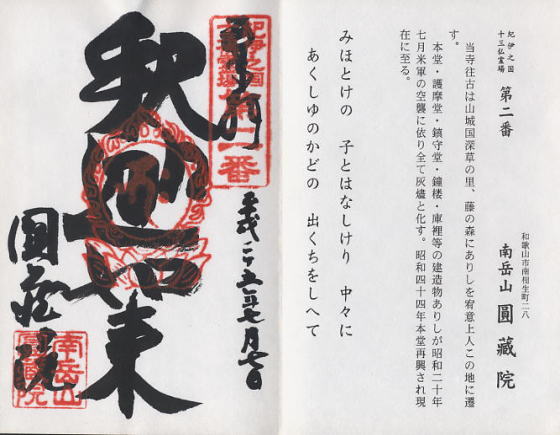 紀伊之国
十三仏霊場
第二番
和歌山市南相生町二八
南岳山 圓藏院
当寺往古は山城国深草の里、藤の森にありしを宥意上人この地に遷
す。
本堂・護摩堂・鎮守堂・鐘楼・庫裡等の建造物ありしが昭和二十年
七月米軍の空襲に依り全て灰燼と化す。昭和四十四年本堂再興され現
在に至る。
みほとけの 子とはなしけり 中々に
あくしゆのかどの 出くちをしへて
紀伊之国
第二番
平成二十五年七月
釈迦如来
圓藏院
南岳山
圓藏院